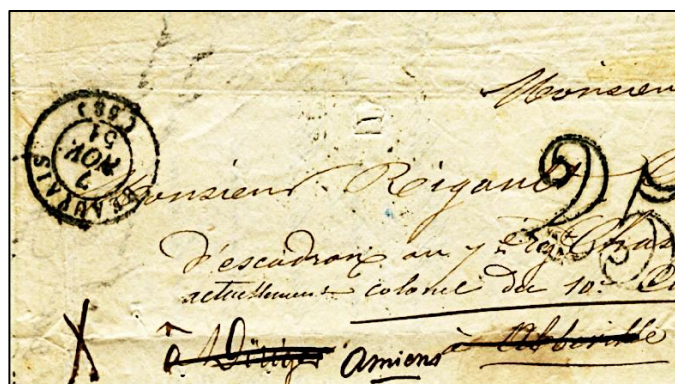 Monsieu
BEAUVAIS (58)
7
NOV.
51
25
Monsieur Rigault
d'escadron au 7 Regt Chas
actuellement colonel du 10e
à Amiens à Abbeville